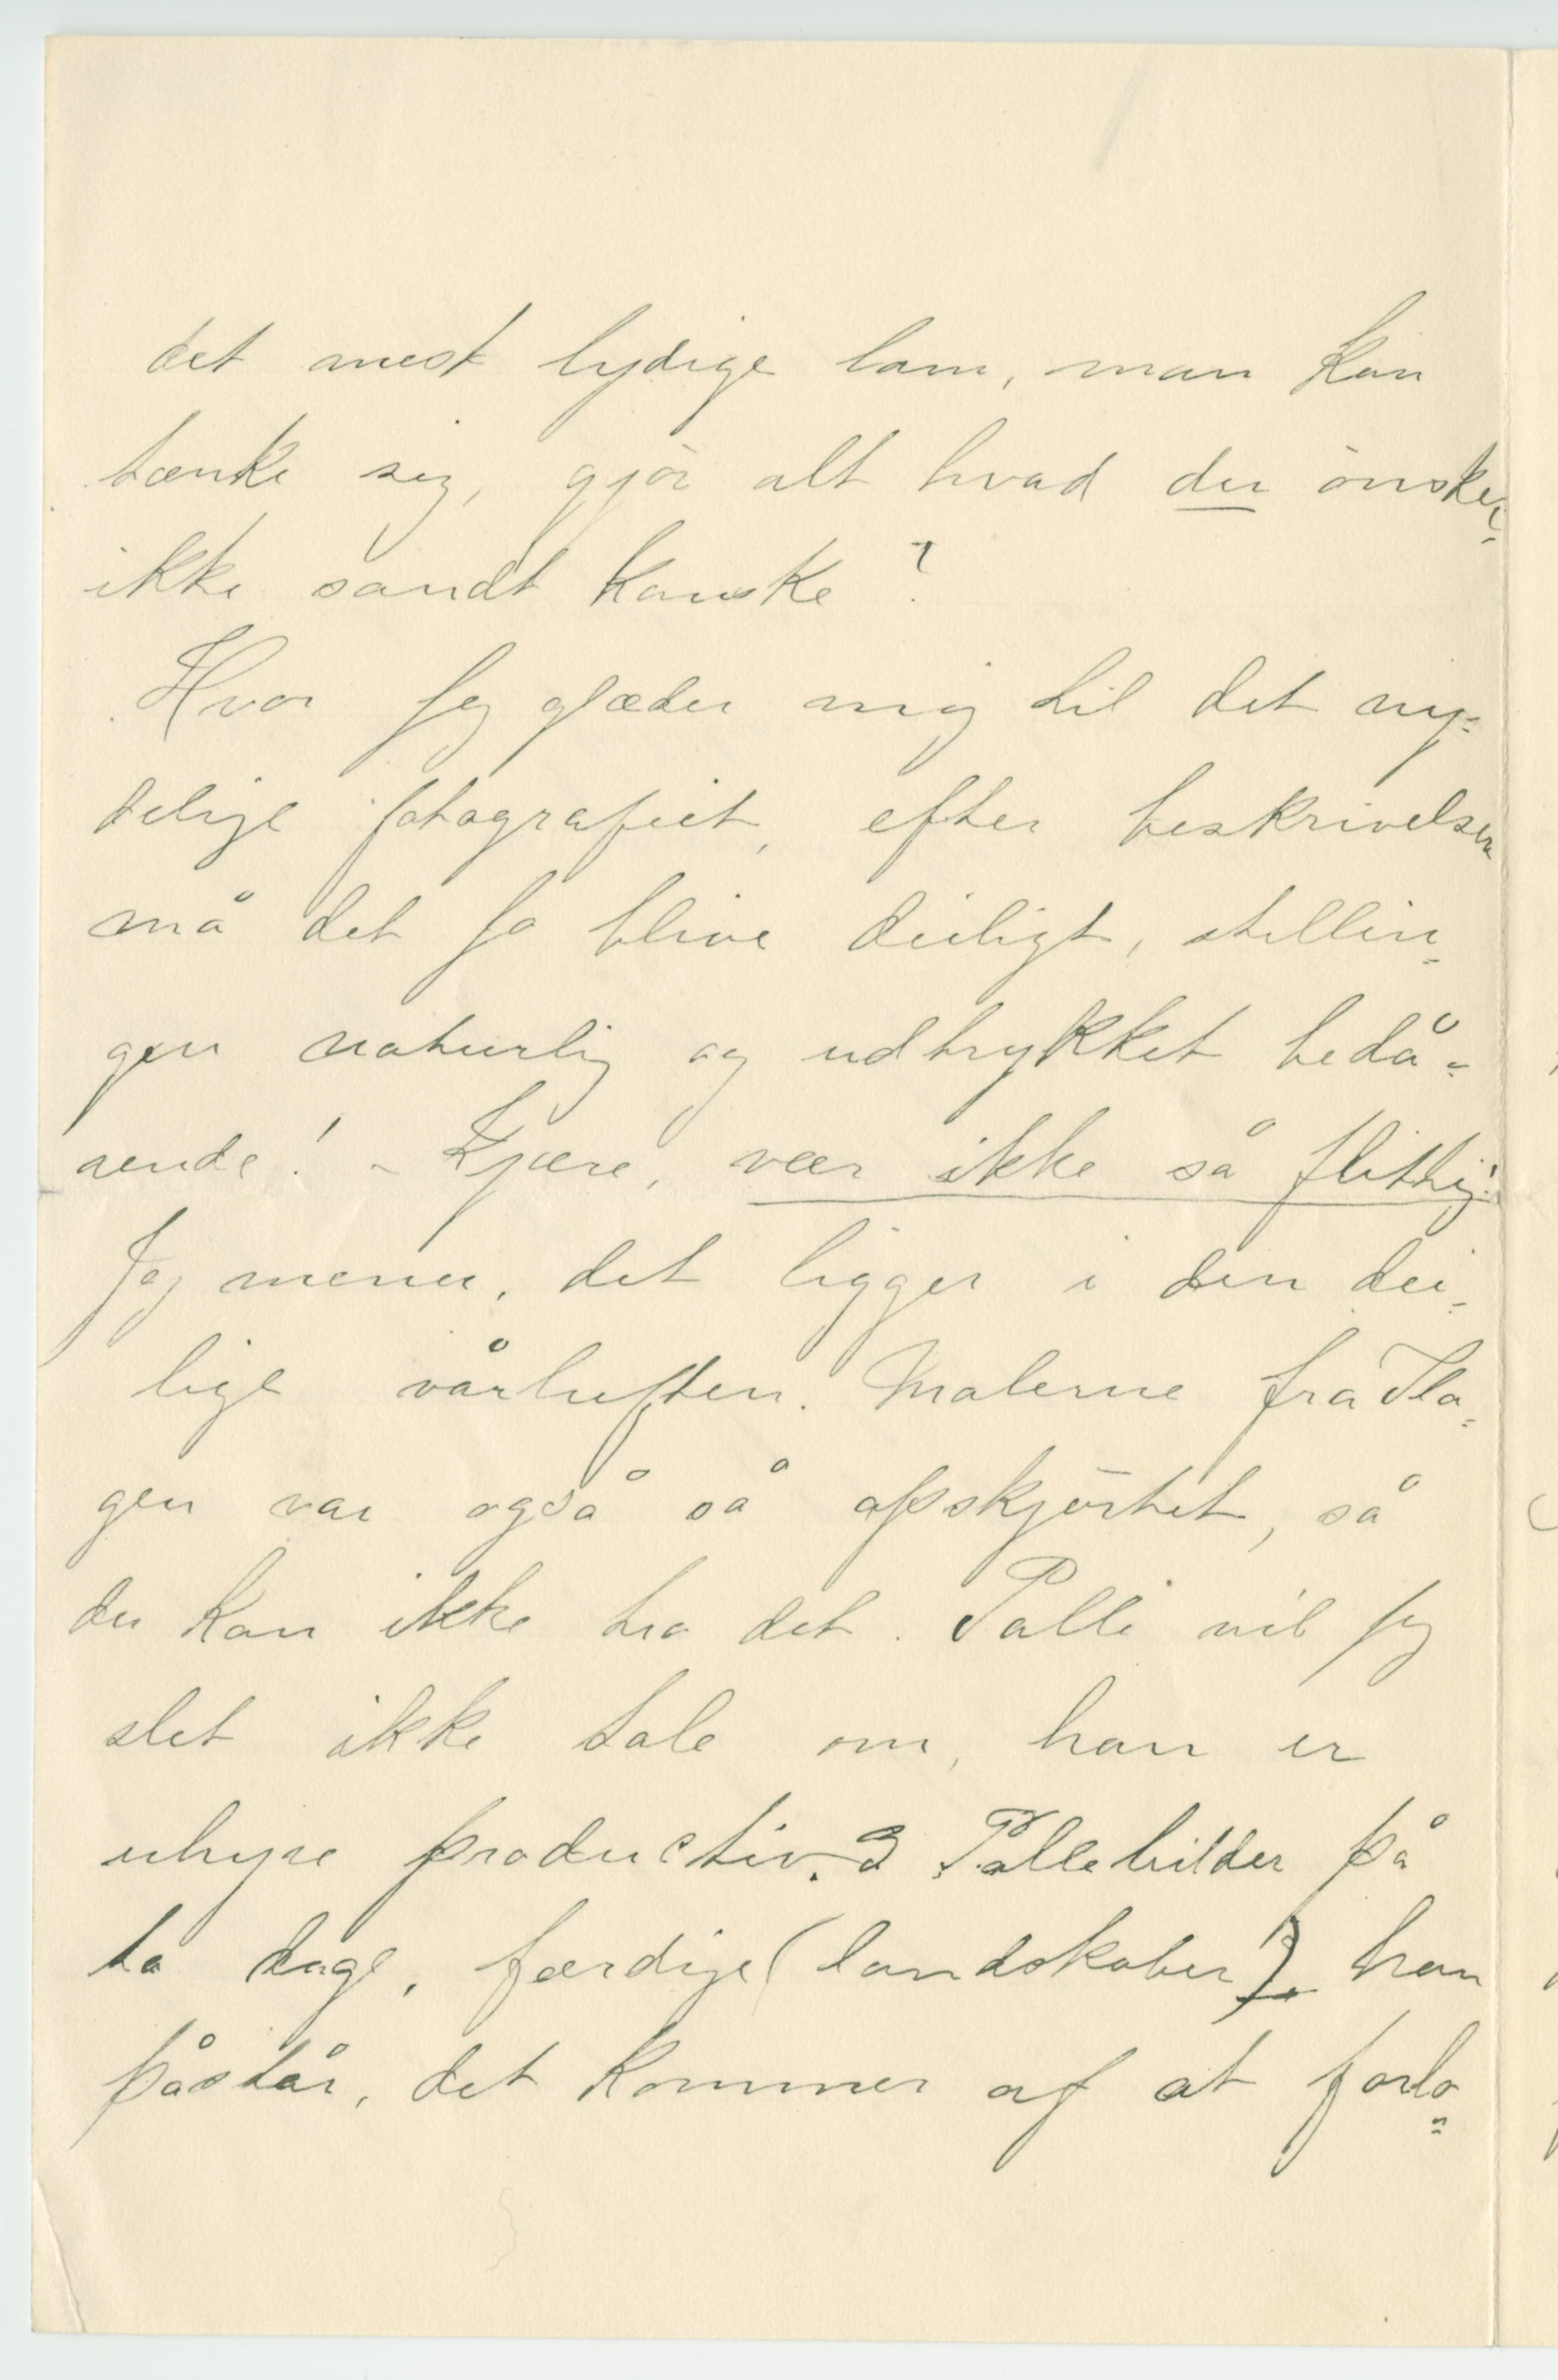 det mest lydige lam, man kan
tænke sig, gjör alt hvad du önsker,
ikke sandt kanske?
Hvor jeg glæder mig til det ny=
delige fotografiet, efter beskrivelsen
må det jo blive deiligt, stillin=
gen naturlig og udtrykket bedå=
rende! – Kjære, vær ikke så flittig!
Jeg mener, det ligger i den dei=
lige vårluften. Malerne fra Sla=
gen var også så opskjörtet, så
du kan ikke tro det. Palle vil jeg
slet ikke tale om, han er
uhyre productiv. 3 Pallebilder på
to dage, færdige (landskaber), han
påstår, det kommer af at forlo=